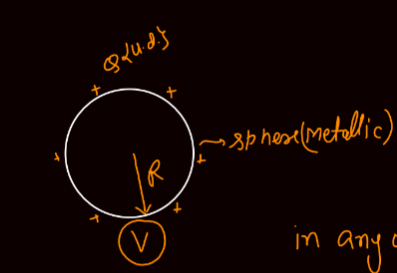 Q{u.d.}
→sphere(metallic)
R
V
in any